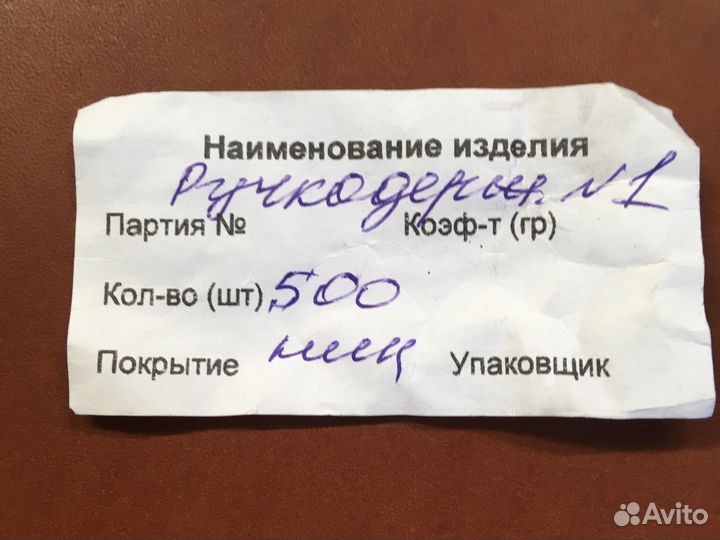 Наименование изделия
Ручкодерж. N1
Партия № Коэф-т (гр)
Кол-во (шт) 500
Покрытие
Упаковщик
Avito